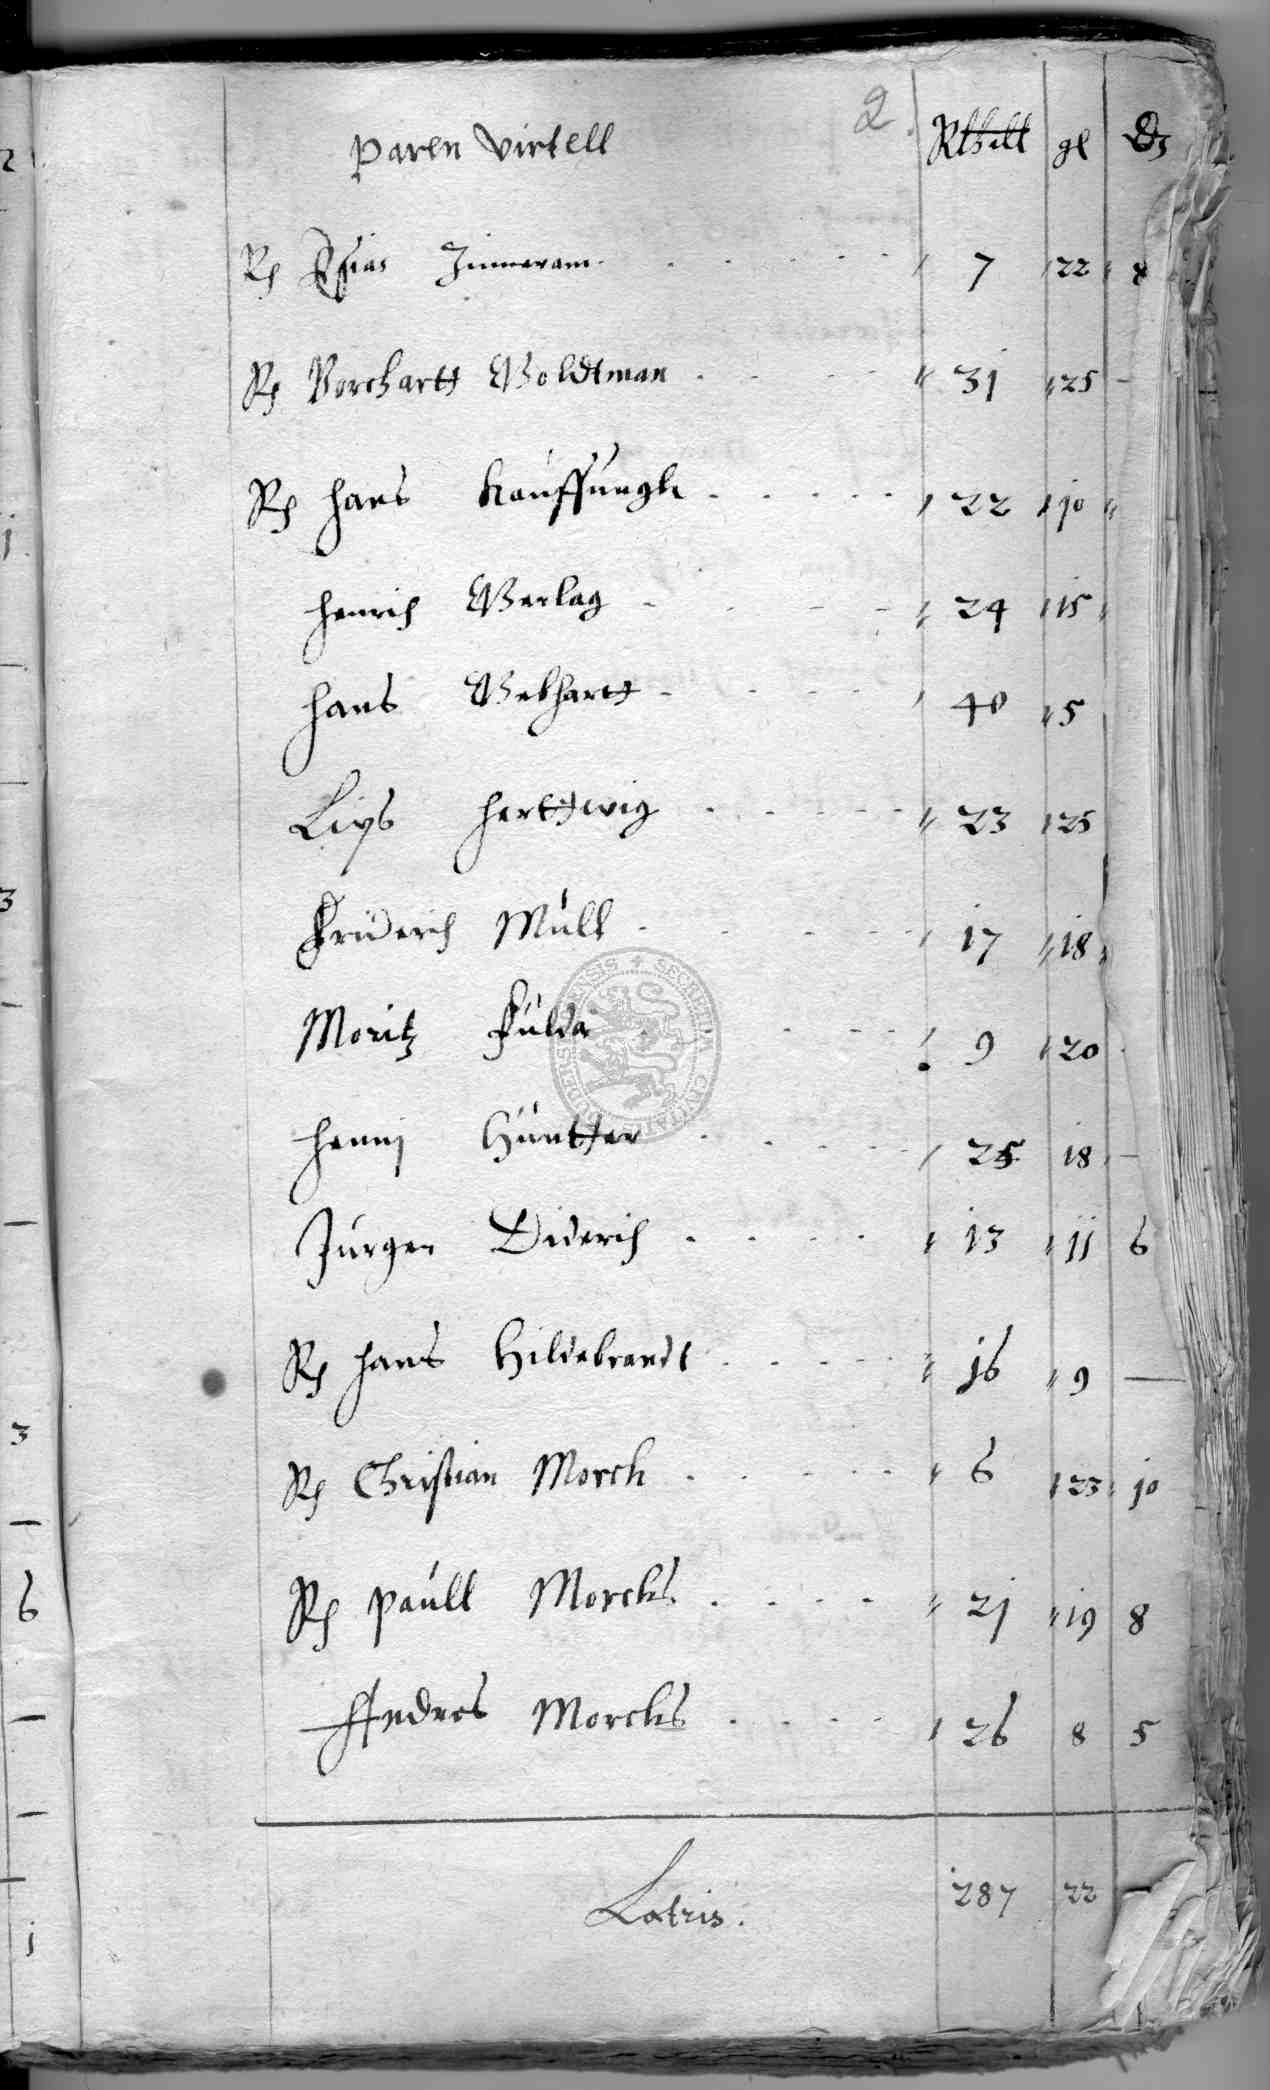 2.
Paren Virtell Rthall gl ₰
Rp Esias Zinneram 7 22 8
Rp Borchartt Woldtman 31 25 -
Rp Hans Kauffungk 22 10
Henrich Gerlag 24 15
Hans Gebhartt 40 5
Lips Herttwig 23 25
Friderich Müll 17 18
Moritz Fulda 9 20
Henni Güntter 25 18 -
Jürgen Diderich 13 11 6
Rp Hans Hildebrandt 16 9 -
Rp Christian Morck 6 23 10
Rp Paull Morcks 21 19 8
Andres Morcks 26 8 5
Latris. 287 22